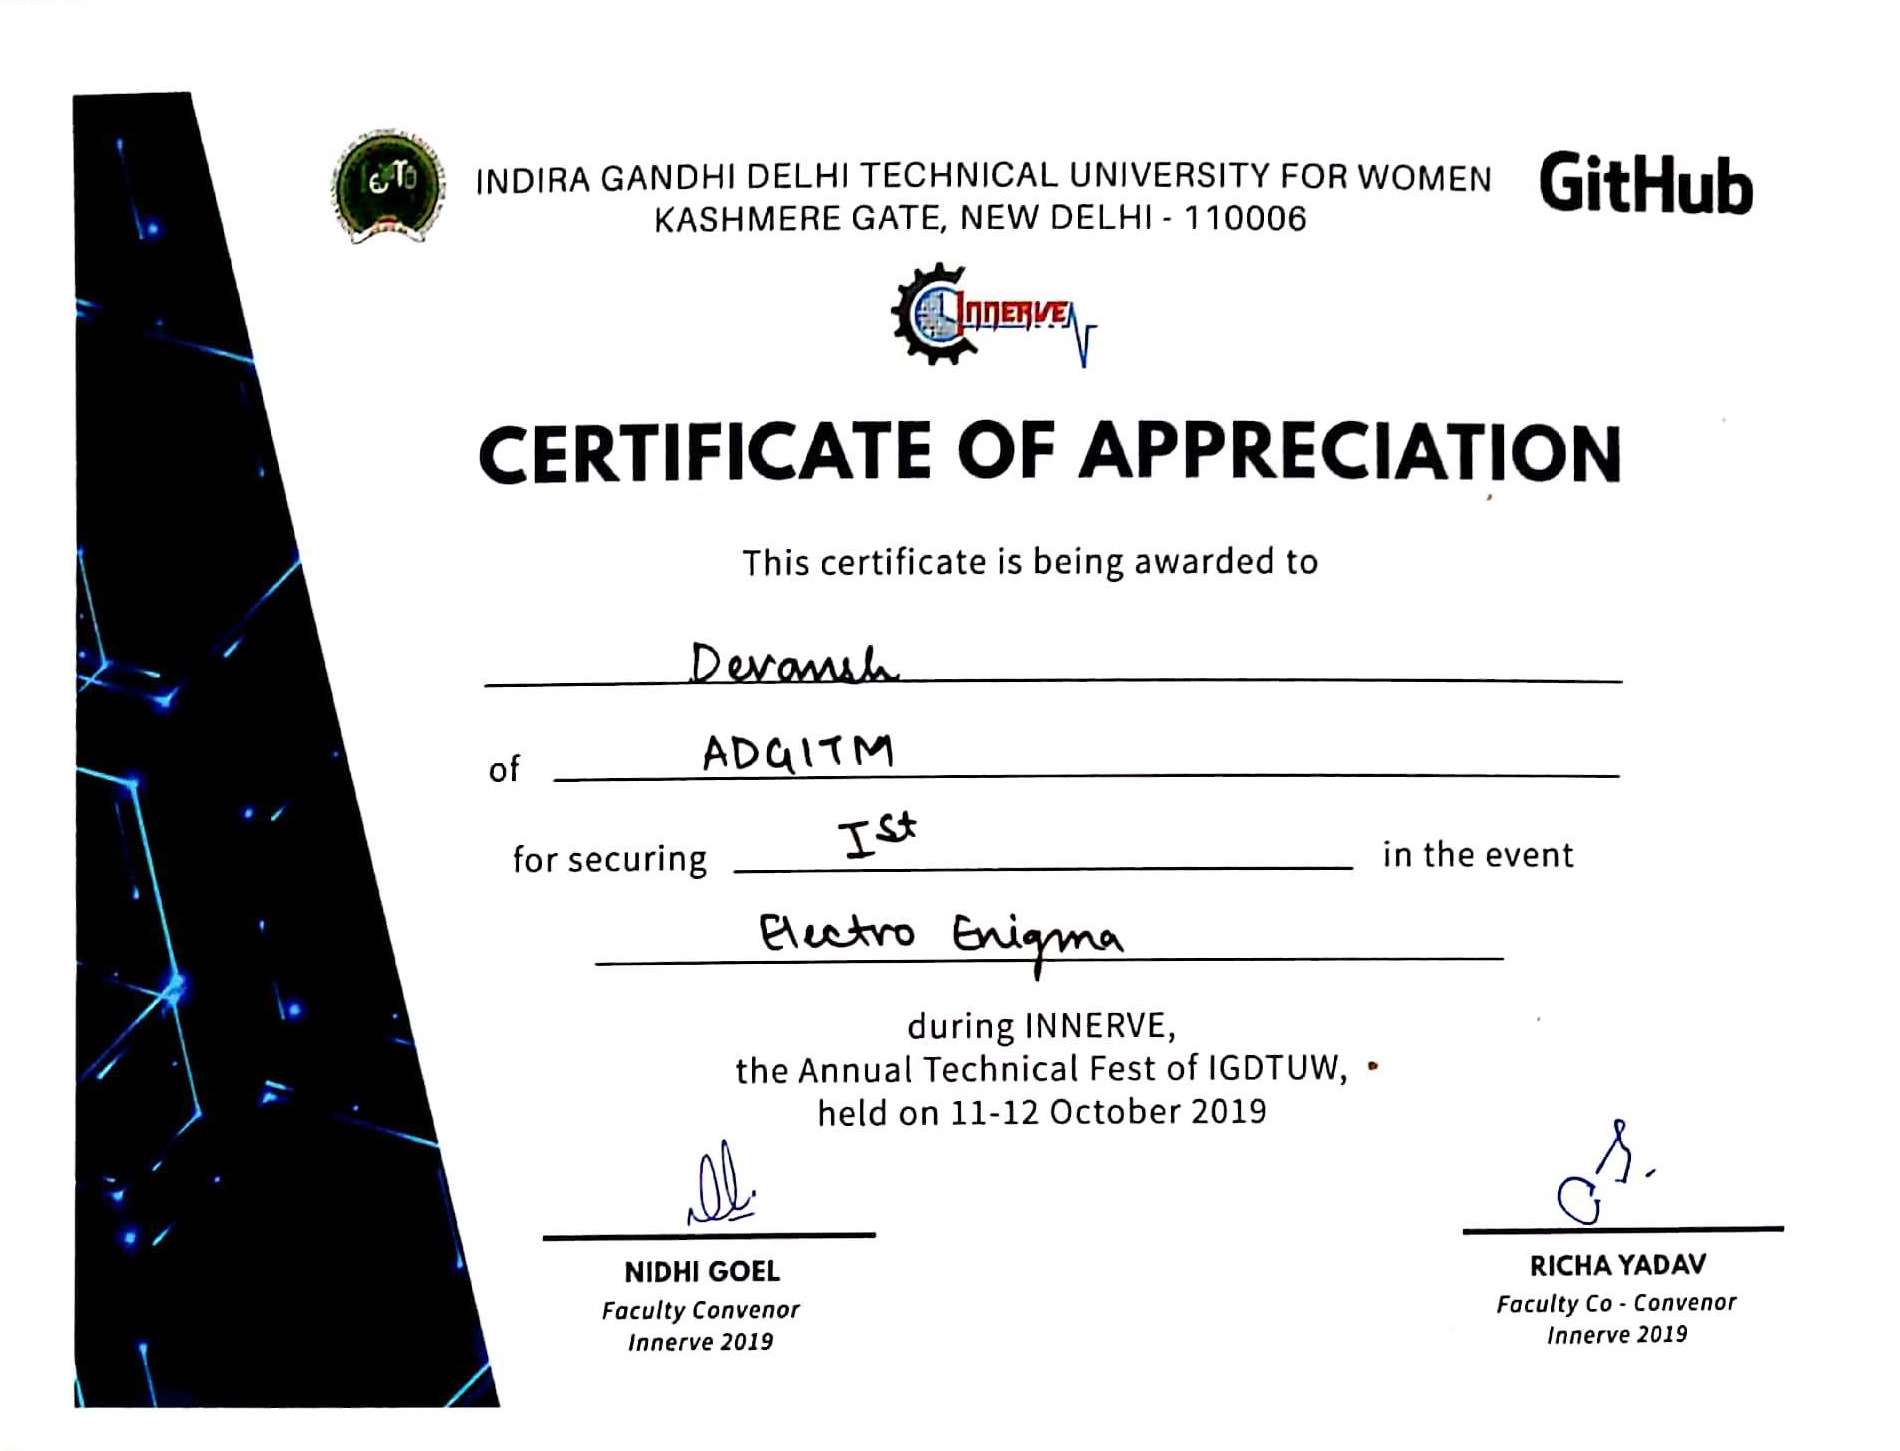 INDIRA GANDHI DELHI TECHNICAL UNIVERSITY FOR WOMEN
KASHMERE GATE, NEW DELHI - 110006
GitHub
INNERVE
CERTIFICATE OF APPRECIATION
This certificate is being awarded to
Devansh
of ADGITM
for securing Ist in the event
Electro Enigma
during INNERVE,
the Annual Technical Fest of IGDTUW,
held on 11-12 October 2019
NIDHI GOEL
Faculty Convenor
Innerve 2019
RICHA YADAV
Faculty Co - Convenor
Innerve 2019